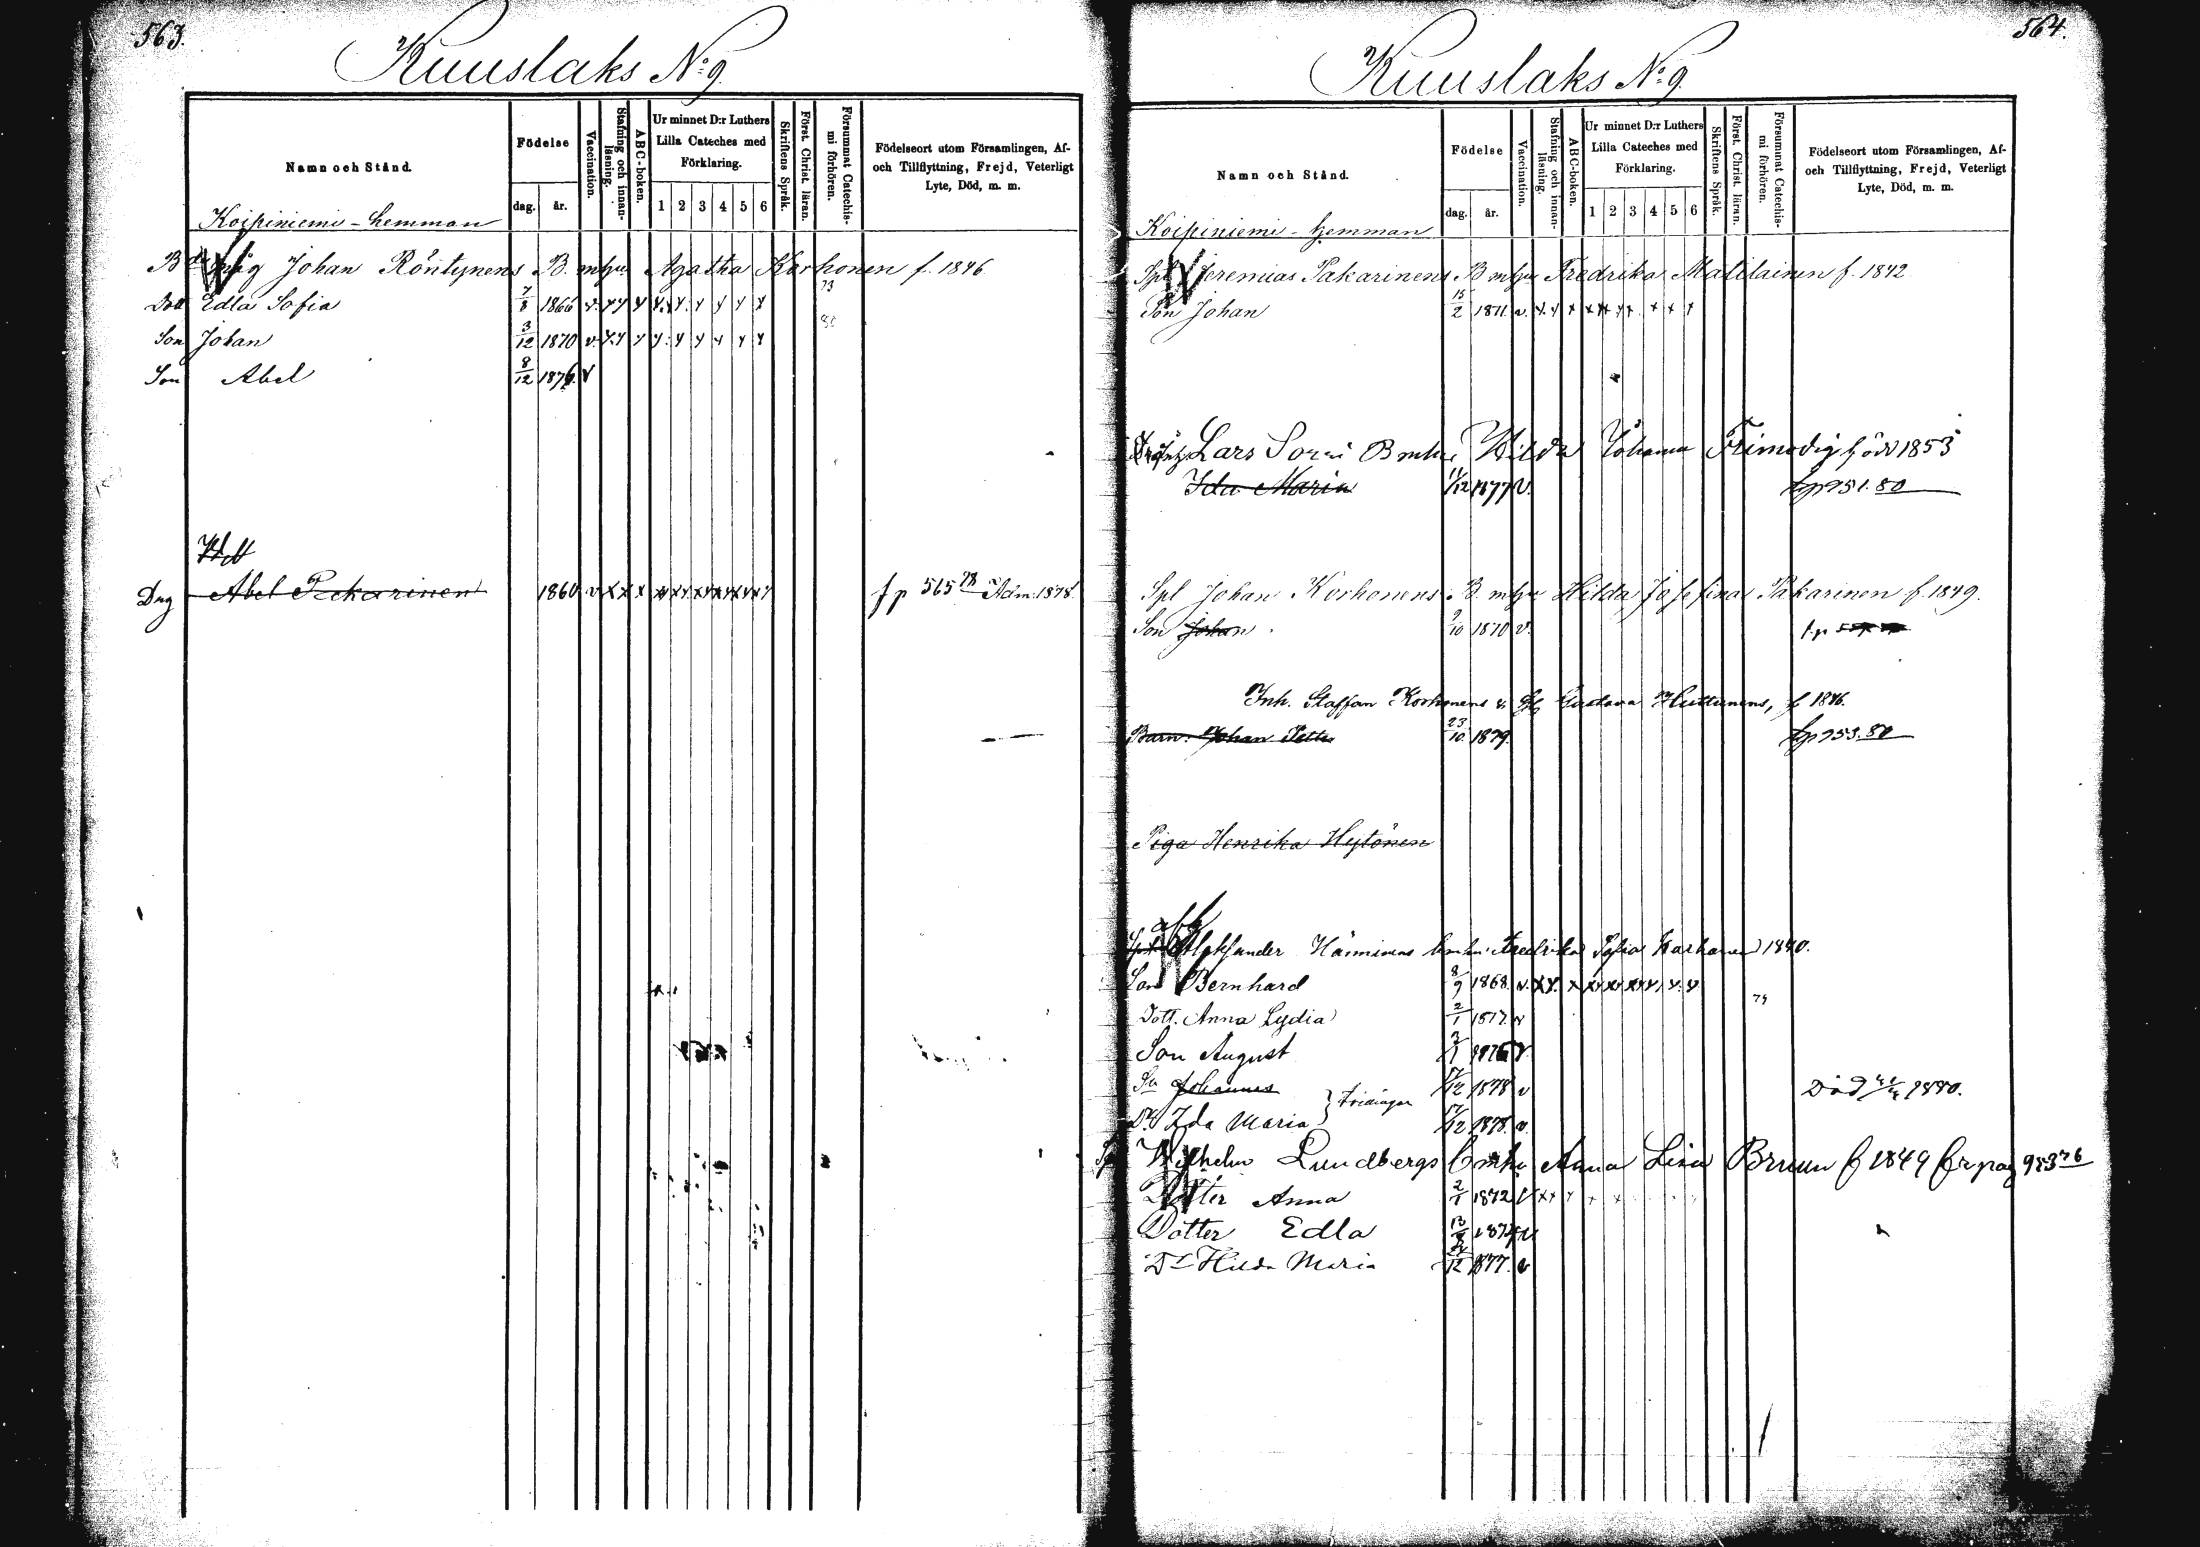 563.
Kuuslaks No 9.
Namn och Stånd.
Födelse
dag.
år.
Vaccination.
Stafning och innan-
läsning.
ABC-boken.
Ur minnet D:r Luthers
Lilla Cateches med
Förklaring.
1 2 3 4 5 6
Skriftens Språk.
Först. Christ. läran.
Försummat Catechis-
mi förhören.
Födelseort utom Församlingen, Af-
och Tillflyttning, Frejd, Veterligt
Lyte, Död, m. m.
Koipiniemi - hemman
Johan Röntynens B. mhu Agatha Korhonen f. 1846
Dott Edla Sofia 7/8 1866 v.
73
Son Johan 3/12 1870 v.
Son Abel 8/12 1876. v
Dng Abel Pakarinen 1860 v x x x fp 565 78 Adm. 1878
564.
Kuuslaks No 9.
Namn och Stånd.
Födelse
dag.
år.
Vaccination.
Stafning och innan-
läsning.
ABC-boken.
Ur minnet D:r Luthers
Lilla Cateches med
Förklaring.
1 2 3 4 5 6
Skriftens Språk.
Först. Christ. läran.
Försummat Catechis-
mi förhören.
Födelseort utom Församlingen, Af-
och Tillflyttning, Frejd, Veterligt
Lyte, Död, m. m.
Koipiniemi - hemman
Spl Jeremias Pakarinens B mhu Fredrika Matilainen f. 1842
Son Johan 15/2 1871 v.
Lars Sorsi B mhu Hilda Johanna Frimodig född 1853
Ida Maria 11/12 1877 v. fp 951.80
Spl Johan Korhonens B. mhu Hilda Josefina Pakarinen f. 1849.
Son Johan 9/10 1870 v. fp
Inh. Staffan Korhonens o. Gustava Huttunens, f 1846.
Barn: Johan Petter 23/10 1879. fp 953.80
Piga Henrika Hytönen
Spl Alexsander Hänninens bmhu Fredrika Sofia Karhonen 1840.
Son Bernhard 8/9 1868. v.
79
Dott. Anna Lydia 2/1 v
Son August 3/1 1876 v.
Sn Johannes 17/12 1878 v Död 1880.
Dr Ida Maria } tvillingar 17/12 1878. v.
Wilhelm Lundbergs bmhu Anna Lisa Bruun f 1849 fr pag 953 76
Dotter Anna 2/1 1872 v
Dotter Edla 1874 v
Dr Hilda Maria 1877. v